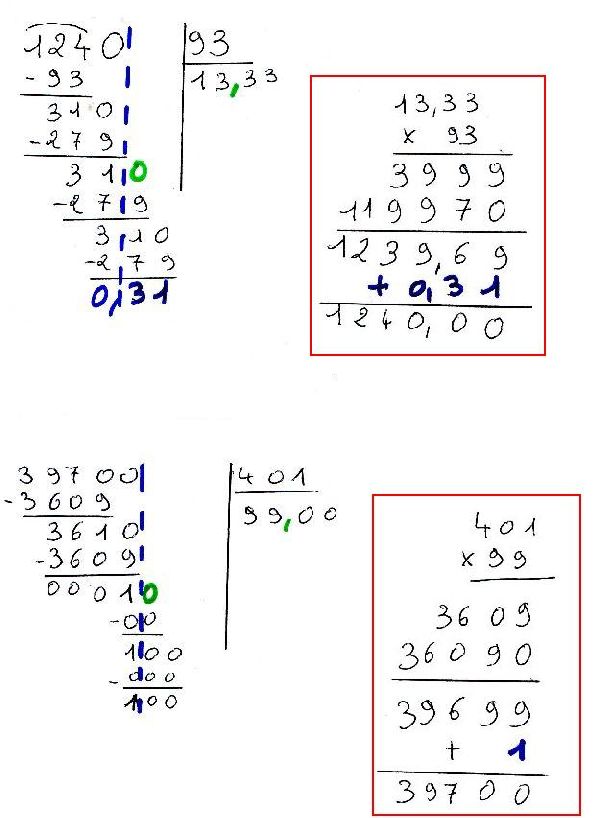 1240 93
- 93 13,33
310
- 279
310
- 279
310
- 279
0,31
13,33
x 93
3999
119970
1239,69
+ 0,31
1240,00
39700 401
- 3609 99,00
3610
- 3609
00010
- 00
100
- 000
100
401
x 99
3609
36090
39699
+ 1
39700